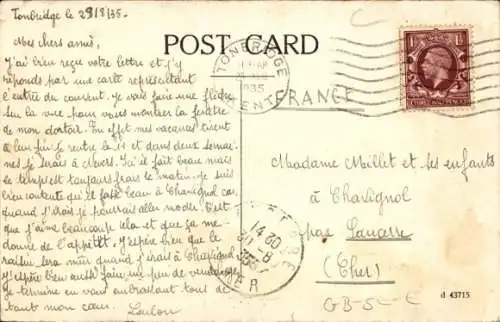 Tonbridge le 28/8/35.
Mes chers amis,
J'ai bien reçu votre lettre et j'y
réponds par une carte représentant
l'entrée du couvent. Je vais faire une flèche
sur la vue pour vous montrer la fenêtre
de mon dortoir. En effet mes vacances tirent
à leur fin, je rentre le 11 et dans deux semai-
nes je serais à Nevers. Ici il fait beau mais
le temps est toujours frais le matin. Je suis
bien contente qu'il fasse beau à Chavignol car
quand j'irais je pourrais aller C'est
que j'aime beaucoup cela et que ça me
donne de l'appétit. J'espère bien que le
raisin sera mûr quand j'irais à Chavignol et
j'espère bien aussi faire un peu de vendange
Je termine en vous embrassant tous de
tout mon cœur. Loulou
POST CARD
TONBRIDGE
1935
KENT
FRANCE
Madame Millet et ses enfants
à Chavignol
par Sancerre
(Cher)
SANCERRE
14 30
30-8
35
CHER
GB-5-E
d 43715